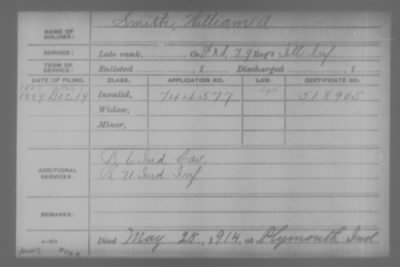 NAME OF SOLDIER: Smith, William A
SERVICE: Late rank, Co. F & I, 29 Reg't Ill Inf
TERM OF SERVICE: Enlisted , 1 Discharged , 1
DATE OF FILING. CLASS. APPLICATION NO. LAW. CERTIFICATE NO.
1889 Dec 19 Invalid, 744577 518905
Widow,
Minor,
ADDITIONAL SERVICES: B. 6 Ind Cav.
B. 71 Ind Inf
REMARKS:
Died May 25, 1914, at Plymouth Ind